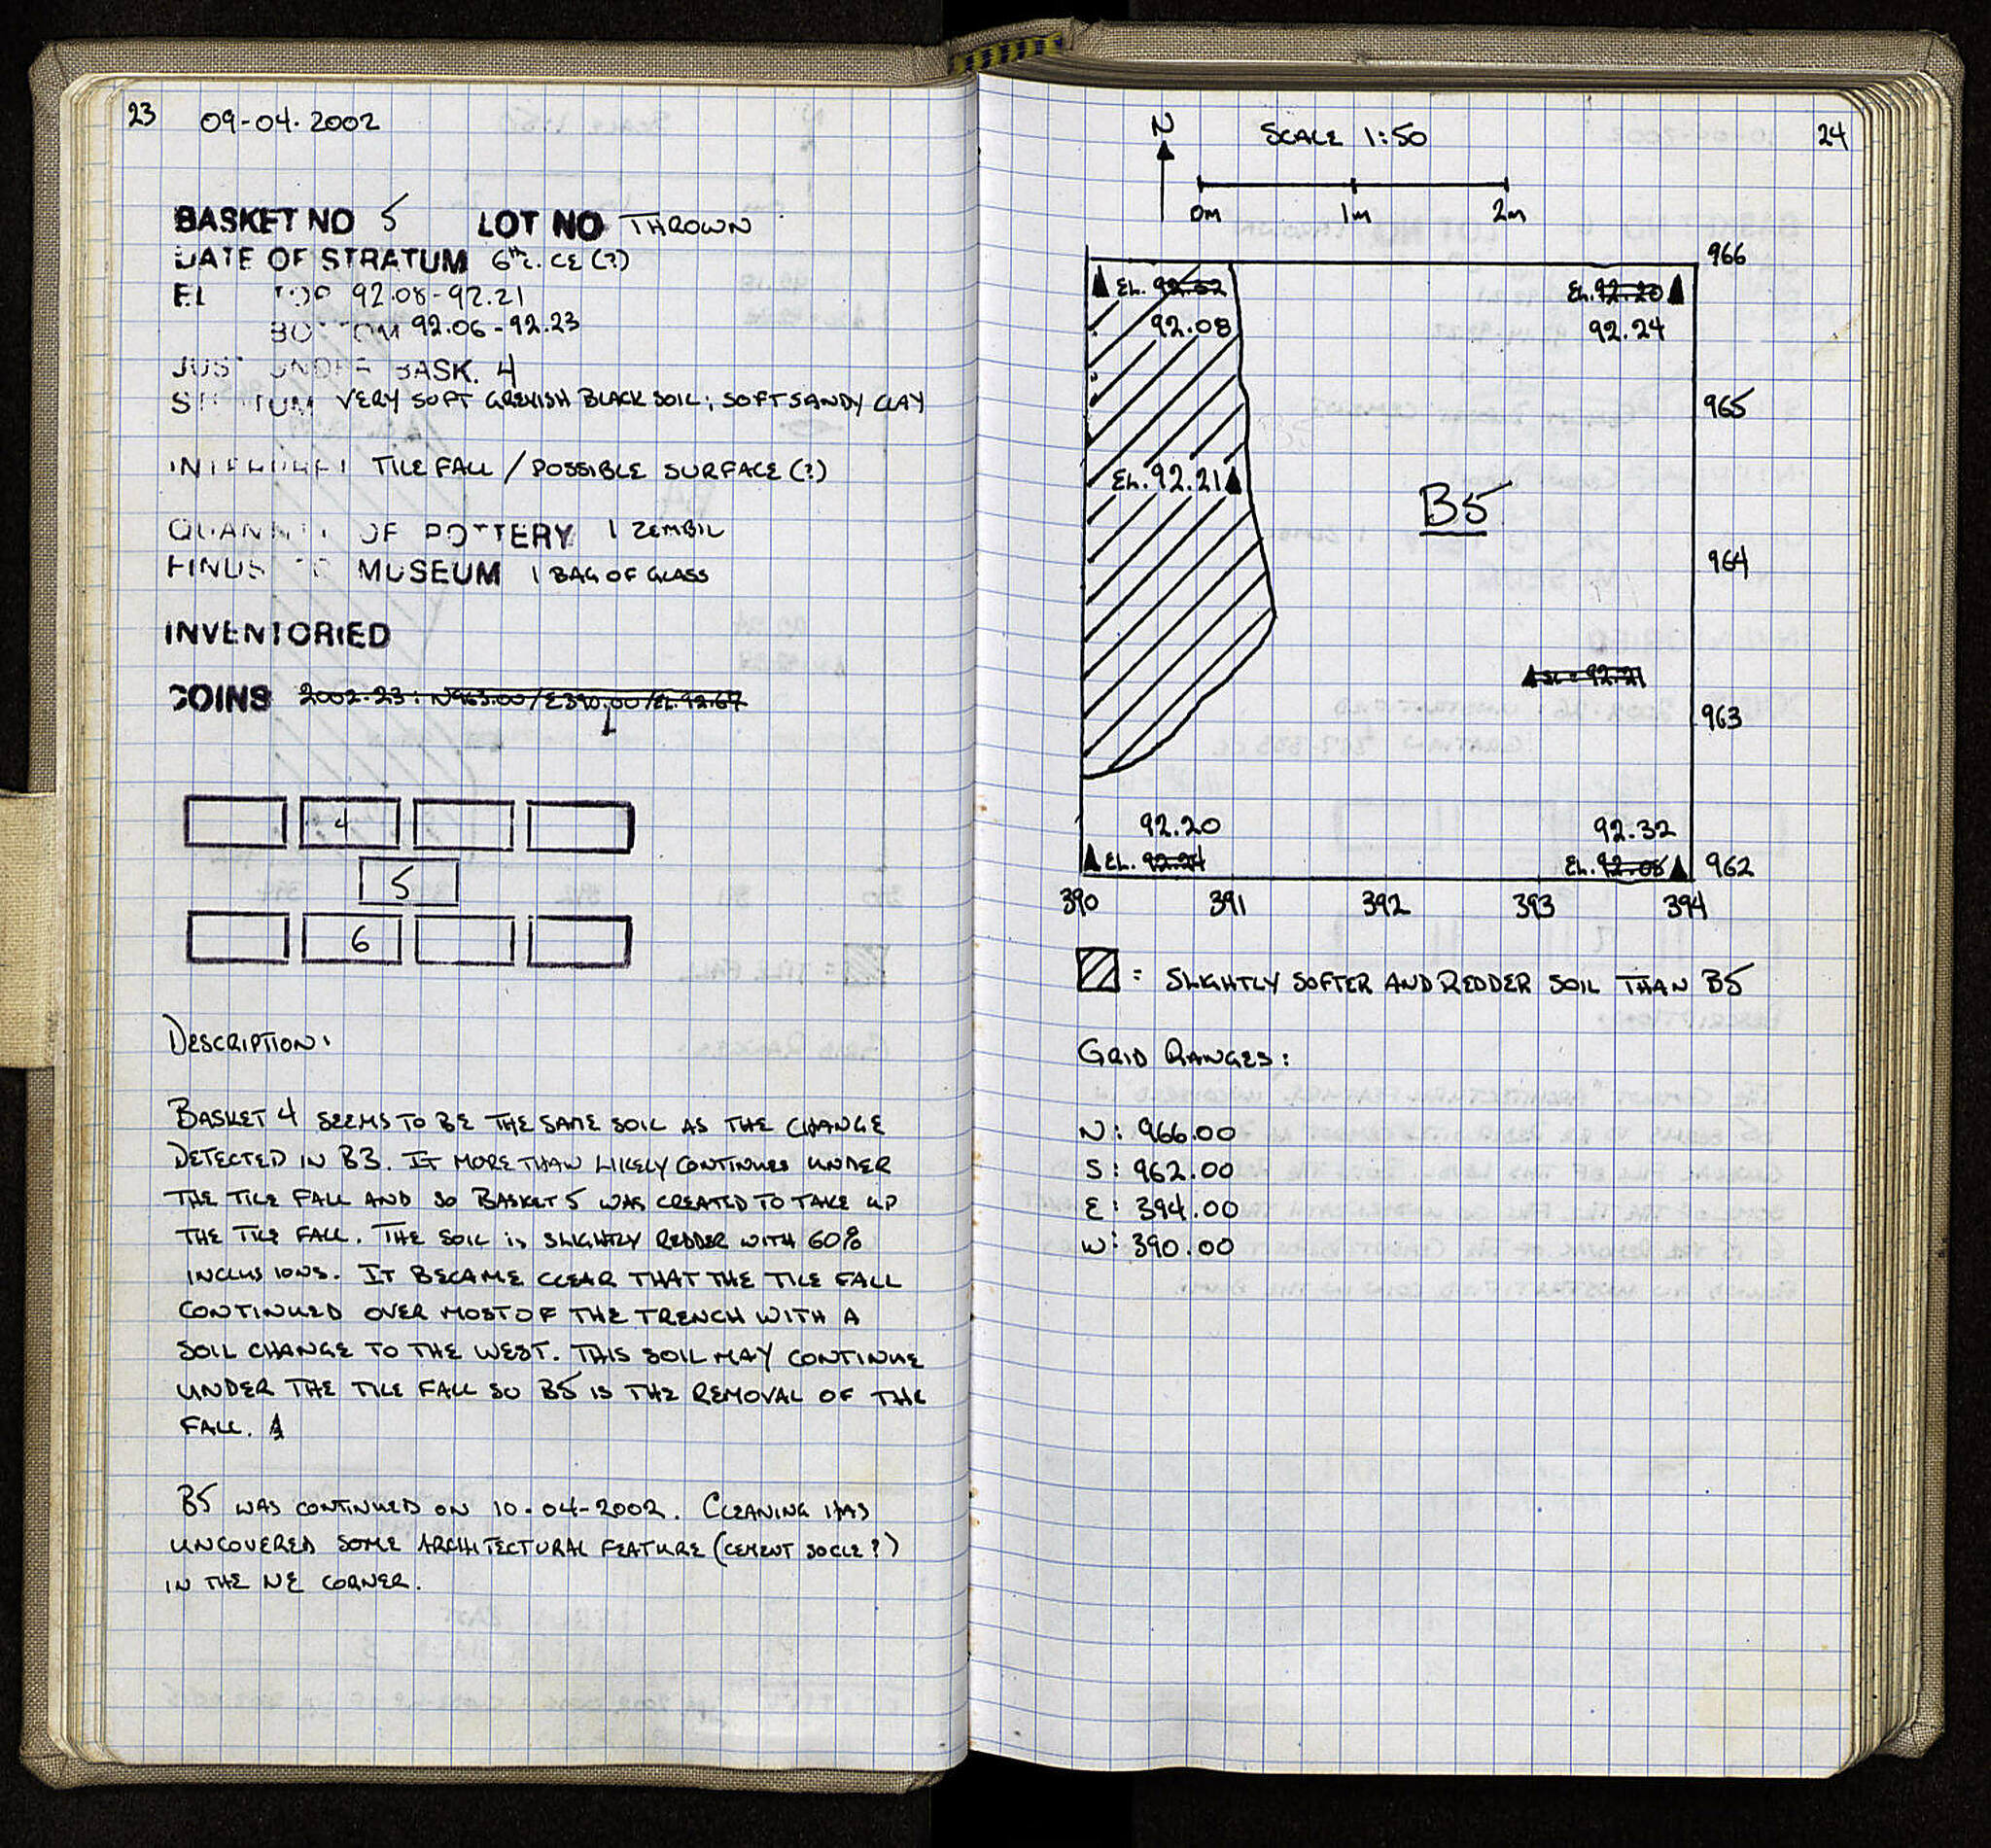 23 09-04.2002
BASKET NO 5 LOT NO THROWN
DATE OF STRATUM 6th c. CE (?)
EL TOP 92.08-92.21
BOTTOM 92.06-92.23
JUST UNDER BASK. 4
STRATUM VERY SOFT GREYISH BLACK SOIL; SOFT SANDY CLAY
INTERPRET TILE FALL / POSSIBLE SURFACE (?)
QUANTITY OF POTTERY 1 ZEMBIL
FINDS TO MUSEUM 1 BAG OF GLASS
INVENTORIED
COINS 2002-23: N963.00/E390.00/EL.92.67
4
5
6
DESCRIPTION:
BASKET 4 SEEMS TO BE THE SAME SOIL AS THE CHANGE
DETECTED IN B3. IT MORE THAN LIKELY CONTINUES UNDER
THE TILE FALL AND SO BASKET 5 WAS CREATED TO TAKE UP
THE TILE FALL. THE SOIL IS SLIGHTLY REDDER WITH 60%
INCLUSIONS. IT BECAME CLEAR THAT THE TILE FALL
CONTINUED OVER MOST OF THE TRENCH WITH A
SOIL CHANGE TO THE WEST. THIS SOIL MAY CONTINUE
UNDER THE TILE FALL SO B5 IS THE REMOVAL OF THE
FALL.
B5 WAS CONTINUED ON 10-04-2002. CLEANING HAS
UNCOVERED SOME ARCHITECTURAL FEATURE (CEMENT SOCLE?)
IN THE NE CORNER.
N SCALE 1:50 24
0m 1m 2m
966
EL. 92.32 EL. 92.20
92.08 92.24
965
EL. 92.21
B5
964
EL. 92.21
963
92.20 92.32
EL. 92.24 EL. 92.06 962
390 391 392 393 394
= SLIGHTLY SOFTER AND REDDER SOIL THAN B5
GRID RANGES:
N: 966.00
S: 962.00
E: 394.00
W: 390.00